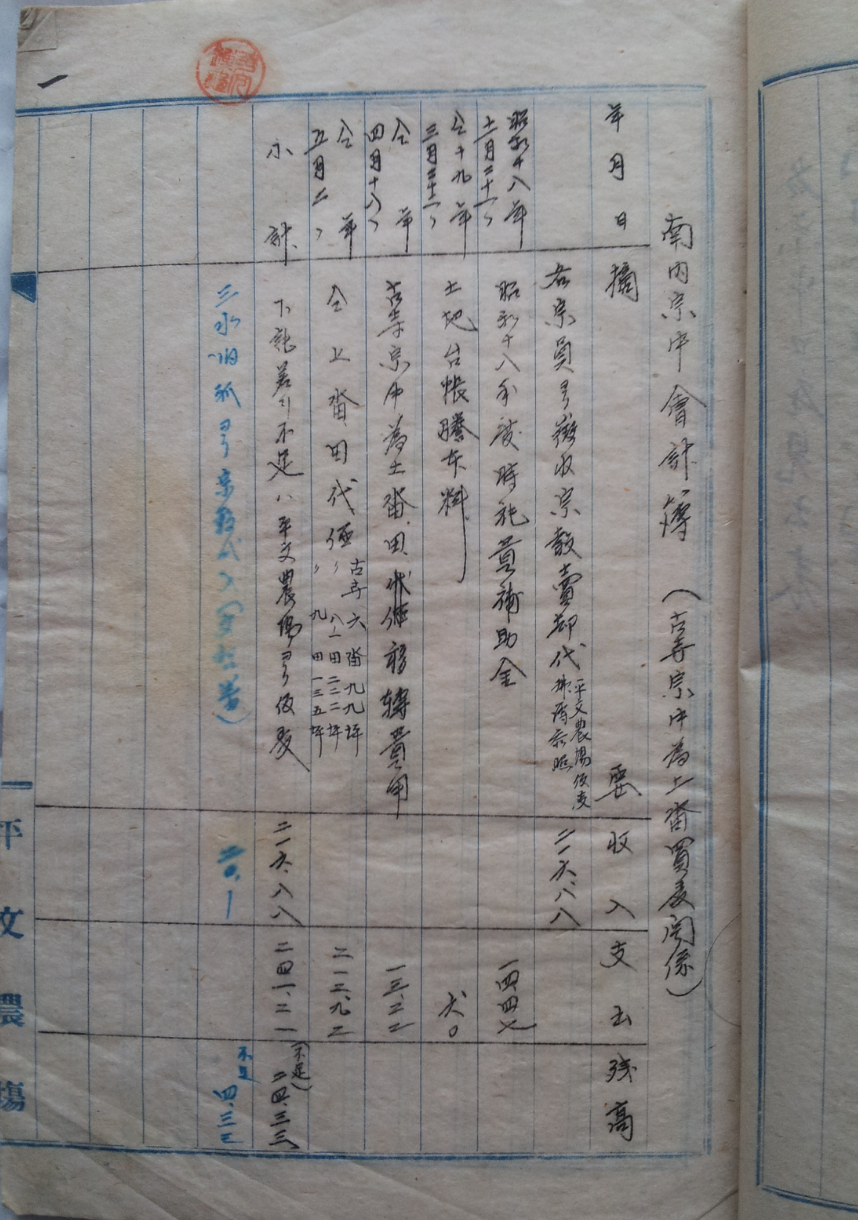 南内宗中會計簿 (古寺宗中為土畓買賣関係)
年月日 摘要 收入 支出 残高
各宗員ヨリ徵收宗穀賣却代 二一六.八八
平文農場仮支
昭和十八年
十二月三十一〃 昭和十八年度時祀費補助金 一四四七
仝十九年
三月三十一〃 土地台帳謄本料 六〇
仝年
四月十八〃 古寺宗中為土畓、田、代価移轉費用 一三.二二
仝年
五月二〃 仝上畓、田代価 二一二.九二
古寺六畓九九坪
〃八一田二三二坪
〃九田一三五坪
小計 下記差引不足ハ平文農場ヨリ仮支 二一六.八八 二四一.二一 (不足)二四.三三
二〇.一 不足四.三三
平文農場